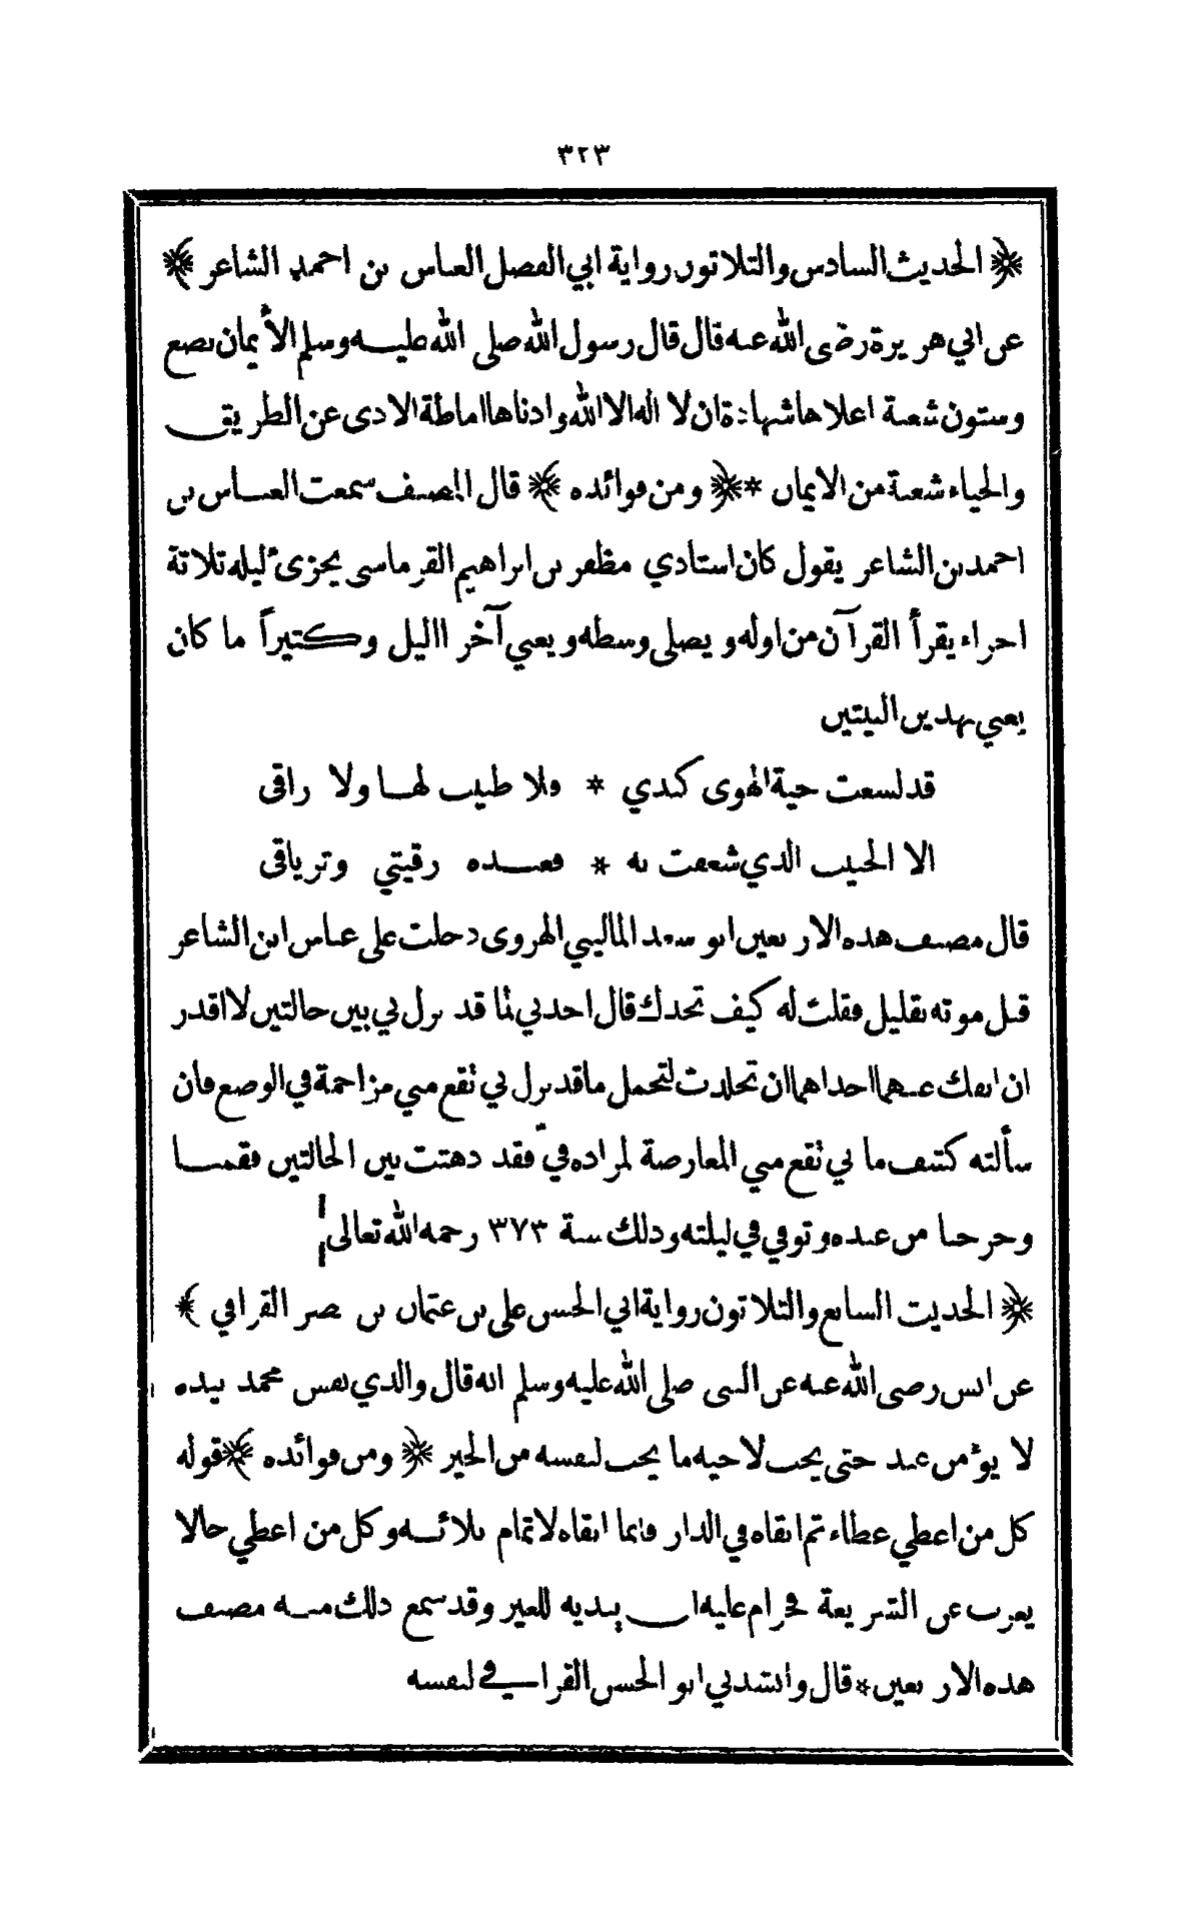 ٣٢٣
﴿ الحديث السادس والثلاثون رواية ابي الفضل العباس بن احمد الشاعر ﴾
عن ابي هريرة رضى الله عنه قال قال رسول الله صلى الله عليه وسلم الأيمان بضع
وستون شعبة اعلاها شهادة ان لا اله الا الله وادناها اماطة الاذى عن الطريق
والحياء شعبة من الايمان * ﴿ ومن فوائده ﴾ قال المصنف سمعت العباس بن
احمد بن الشاعر يقول كان استاذي مظفر بن ابراهيم القرماسى يجزئ ليله ثلاثة
اجزاء يقرأ القرآن من اوله ويصلى وسطه ويعي آخر الليل وكثيراً ما كان
يعي بهذين البيتين
قد لسعت حية الهوى كبدي * فلا طبيب لها ولا راقى
الا الحبيب الذي شغفت به * فعنده رقيتي وترياقى
قال مصنف هذه الاربعين ابو سعد الماليني الهروى دخلت على عباس ابن الشاعر
قبل موته بقليل فقلت له كيف تجدك قال اجدني لما قد نزل بي بين حالتين لا اقدر
ان انفك عنهما احداهما ان تجلدت لتحمل ما قد نزل بي تقع مني مزاحمة في الوضع فان
سألته كشف ما بي تقع مني المعارضة لمراده فيّ فقد دهتت بين الحالتين فقمنا
وخرجنا من عنده وتوفي في ليلته وذلك سنة ٣٧٣ رحمه الله تعالى
﴿ الحديث السابع والثلاثون رواية ابي الحسن على بن عثمان بن نصر القرافي ﴾
عن انس رضى الله عنه عن النبى صلى الله عليه وسلم انه قال والذي نفس محمد بيده
لا يؤمن عبد حتى يحب لاخيه ما يحب لنفسه من الخير ﴿ ومن فوائده ﴾ قوله
كل من اعطي عطاء ثم ابقاه في الدار فانما ابقاه لاتمام بلائه وكل من اعطي حالا
يعرب عن الشريعة فحرام عليه ان يبديه للغير وقد سمع ذلك منه مصنف
هذه الاربعين * قال وانشدني ابو الحسن القرافي لنفسه